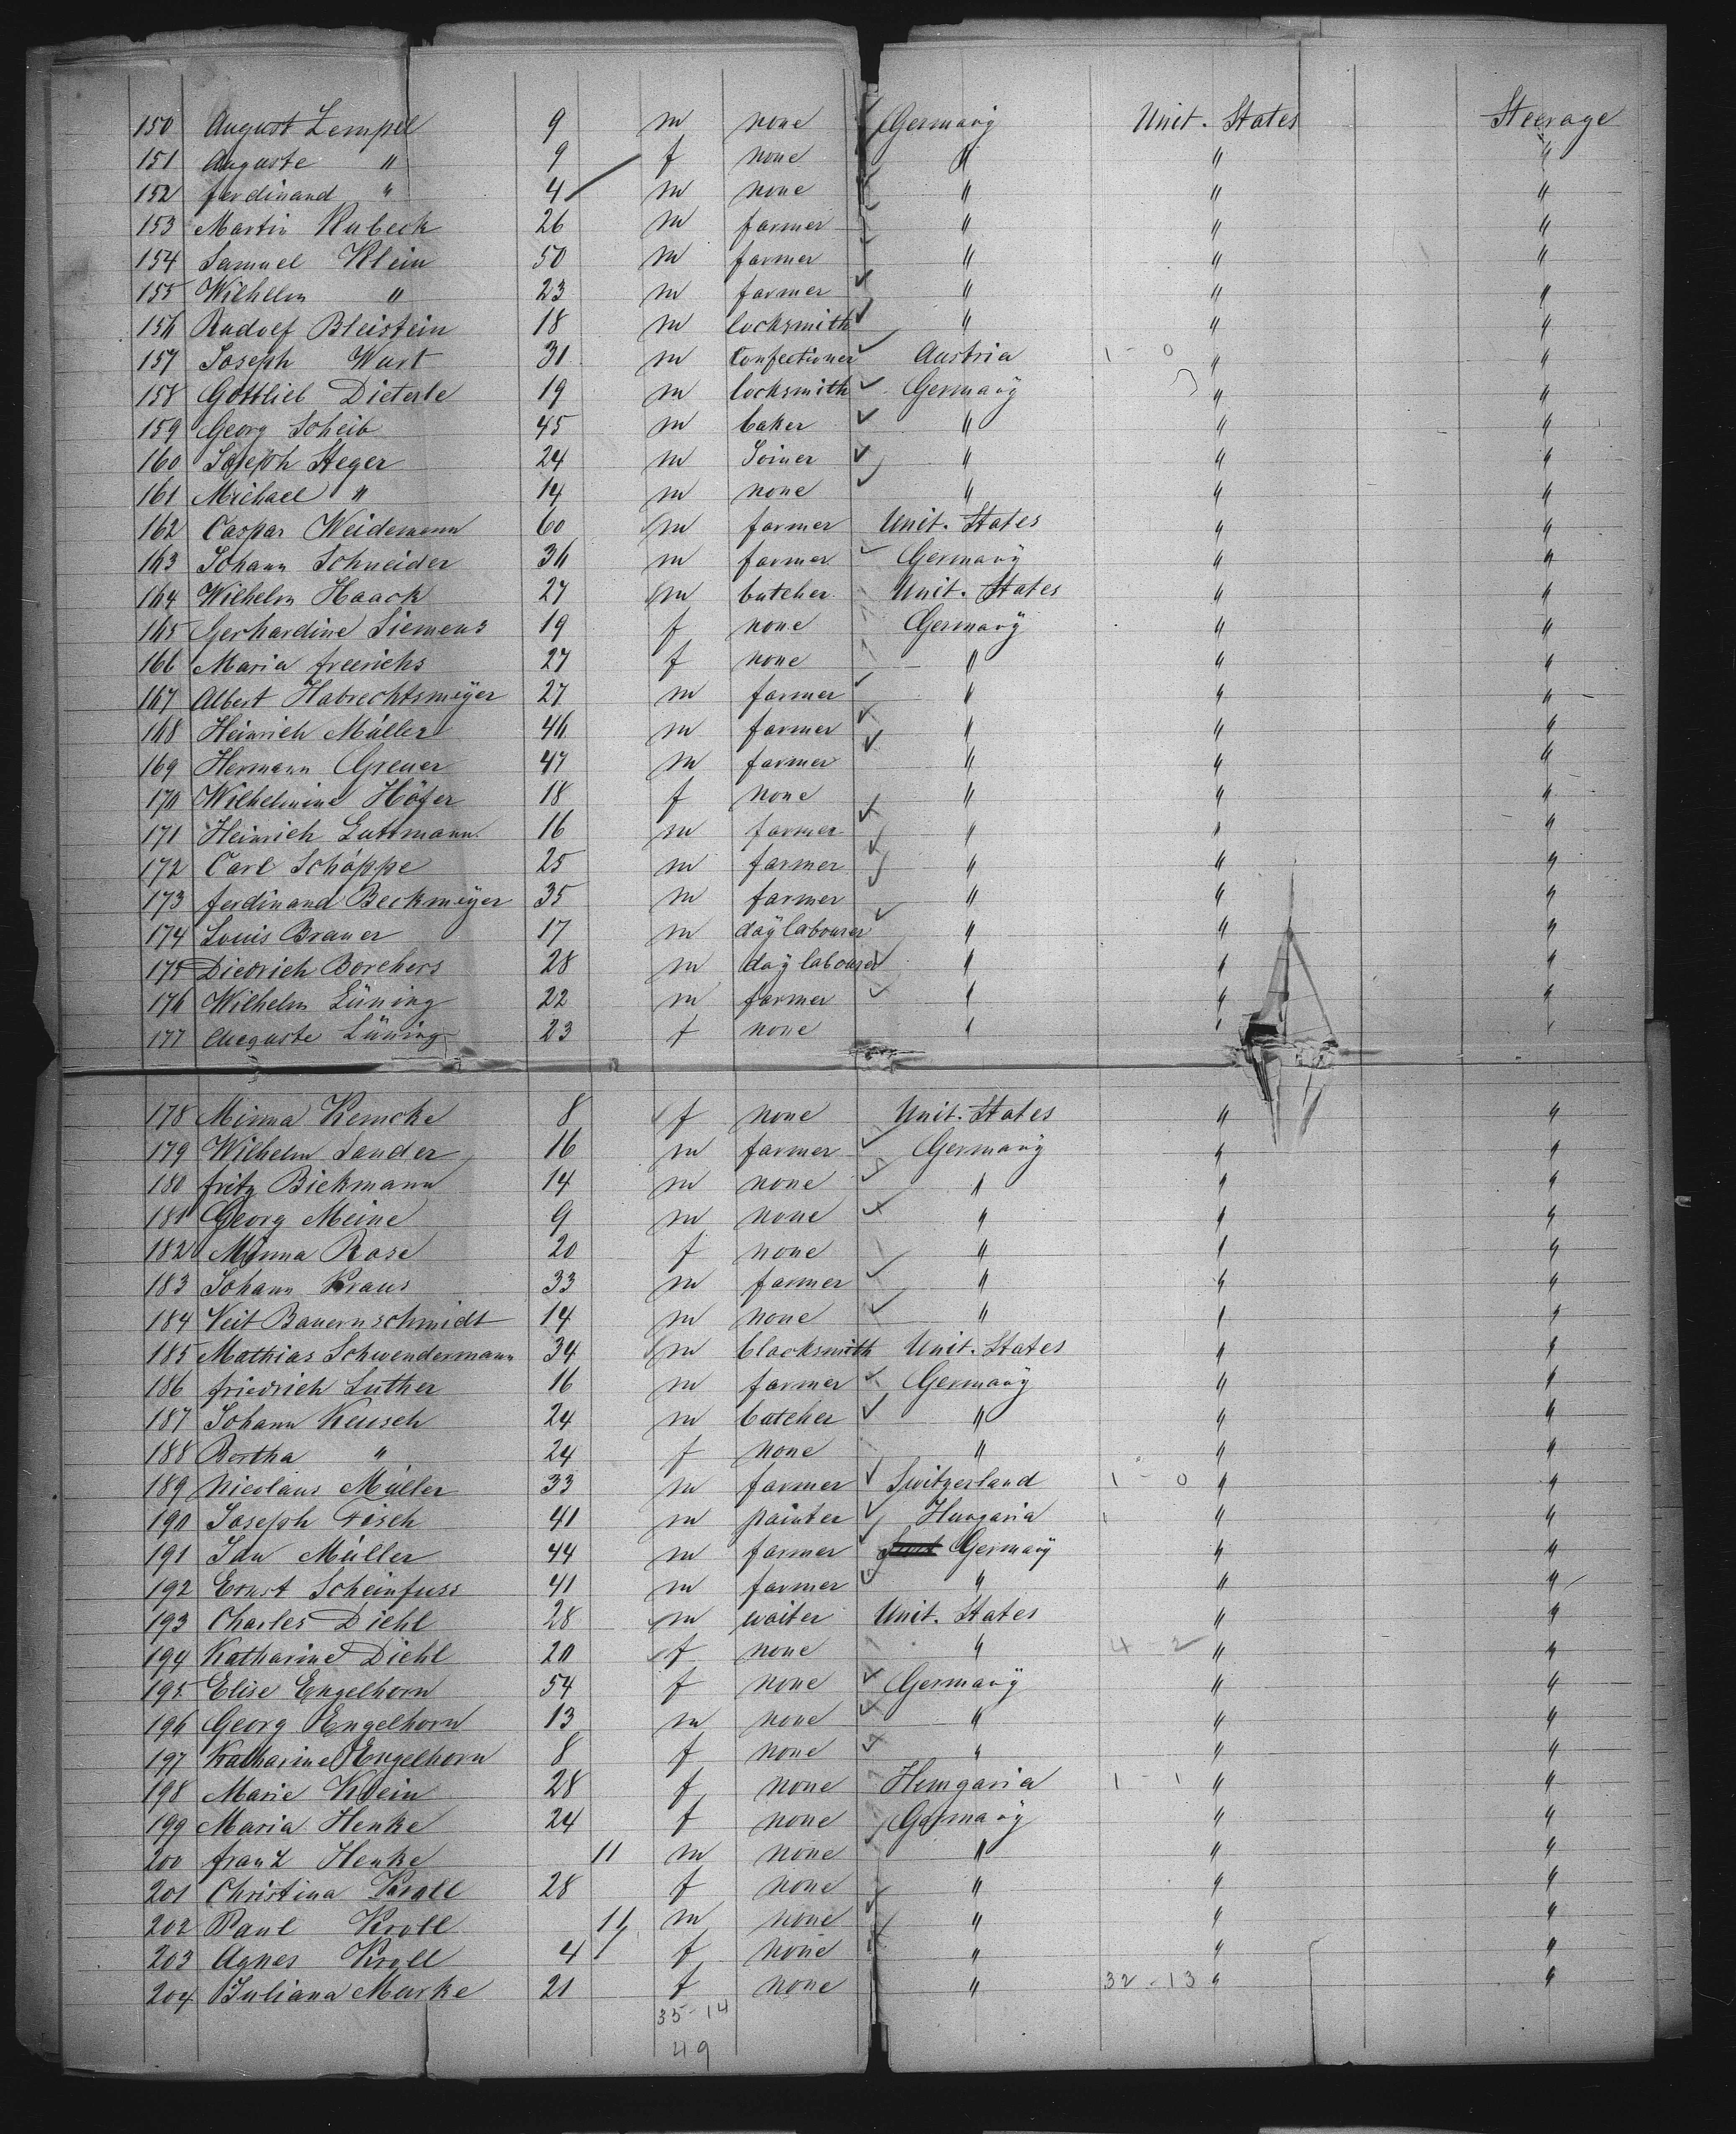 150 August Lempel 9 m none Germany Unit. States Steerage
151 Auguste " 9 f none " " "
152 ferdinand " 4 m none " " "
153 Martin Rubeck 26 m farmer " " "
154 Samuel Klein 50 m farmer " " "
155 Wilhelm " 23 m farmer " " "
156 Rudolf Bleistein 18 m locksmith " " "
157 Joseph Wust 31 m Confectioner Austria 1 - 0 " "
158 Gottlieb Dieterle 19 m locksmith Germany " "
159 Georg Scheib 45 m baker " " "
160 Joseph Steger 24 m Joiner " " "
161 Michael " 14 m none " " "
162 Caspar Weidemann 60 m farmer Unit. States " "
163 Johann Schneider 36 m farmer Germany " "
164 Wilhelm Haack 27 m butcher Unit. States " "
165 Gerhardine Siemens 19 f none Germany " "
166 Maria freerichs 27 f none " " "
167 Albert Habrechtsmeÿer 27 m farmer " " "
168 Heinrich Müller 46 m farmer " " "
169 Hermann Grener 47 m farmer " " "
170 Wilhelmine Höfer 18 f none " " "
171 Heinrich Guttmann 16 m farmer " " "
172 Carl Schöppe 25 m farmer " " "
173 ferdinand Beckmeÿer 35 m farmer " " "
174 Louis Brauer 17 m daÿ labourer " " "
175 Diedrich Borchers 28 m day labourer " " "
176 Wilhelm Lüning 22 m farmer " " "
177 Auguste Lüning 23 f none " " "
178 Minna Kemcke 8 f none Unit. States " "
179 Wilhelm Sander 16 m farmer Germany " "
180 fritz Biekmann 14 m none " " "
181 Georg Meine 9 m none " " "
182 Minna Rose 20 f none " " "
183 Johann Kraus 33 m farmer " " "
184 Veit Bauernschmidt 14 m none " " "
185 Mathias Schwendermann 34 m blacksmith Unit. States " "
186 friedrich Luther 16 m farmer Germany " "
187 Johann Keusch 24 m butcher " " "
188 Bertha " 24 f none " " "
189 Nicolaus Müller 33 m farmer Switzerland 1 - 0 " "
190 Joseph Fisch 41 m painter Hungaria " "
191 Idu Müller 44 m farmer Germany " "
192 Ernst Scheinfuss 41 m farmer " " "
193 Charles Diehl 28 m waiter Unit. States " "
194 Katharine Diehl 20 f none " 4 - 2 " "
195 Elise Engelhorn 54 f none Germany " "
196 Georg Engelhorn 13 m none " " "
197 Katharine Engelhorn 8 f none " " "
198 Marie Klein 28 f none Hungaria 1 - 1 " "
199 Maria Henke 24 f none Germany " "
200 franz Henke 11 m none " " "
201 Christina Kroll 28 f none " " "
202 Paul Kroll 11 m none " " "
203 Agnes Kroll 4 f none " " "
204 Juliana Marke 21 f none " 32 - 13 " "
35 - 14
49